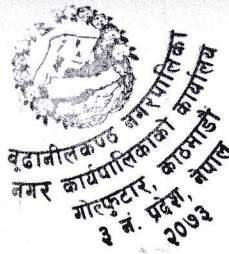 बूढानीलकण्ठ नगरपालिका
नगर कार्यपालिकाको कार्यालय
गोल्फुटार, काठमाडौं
३ नं. प्रदेश, नेपाल
२०७३